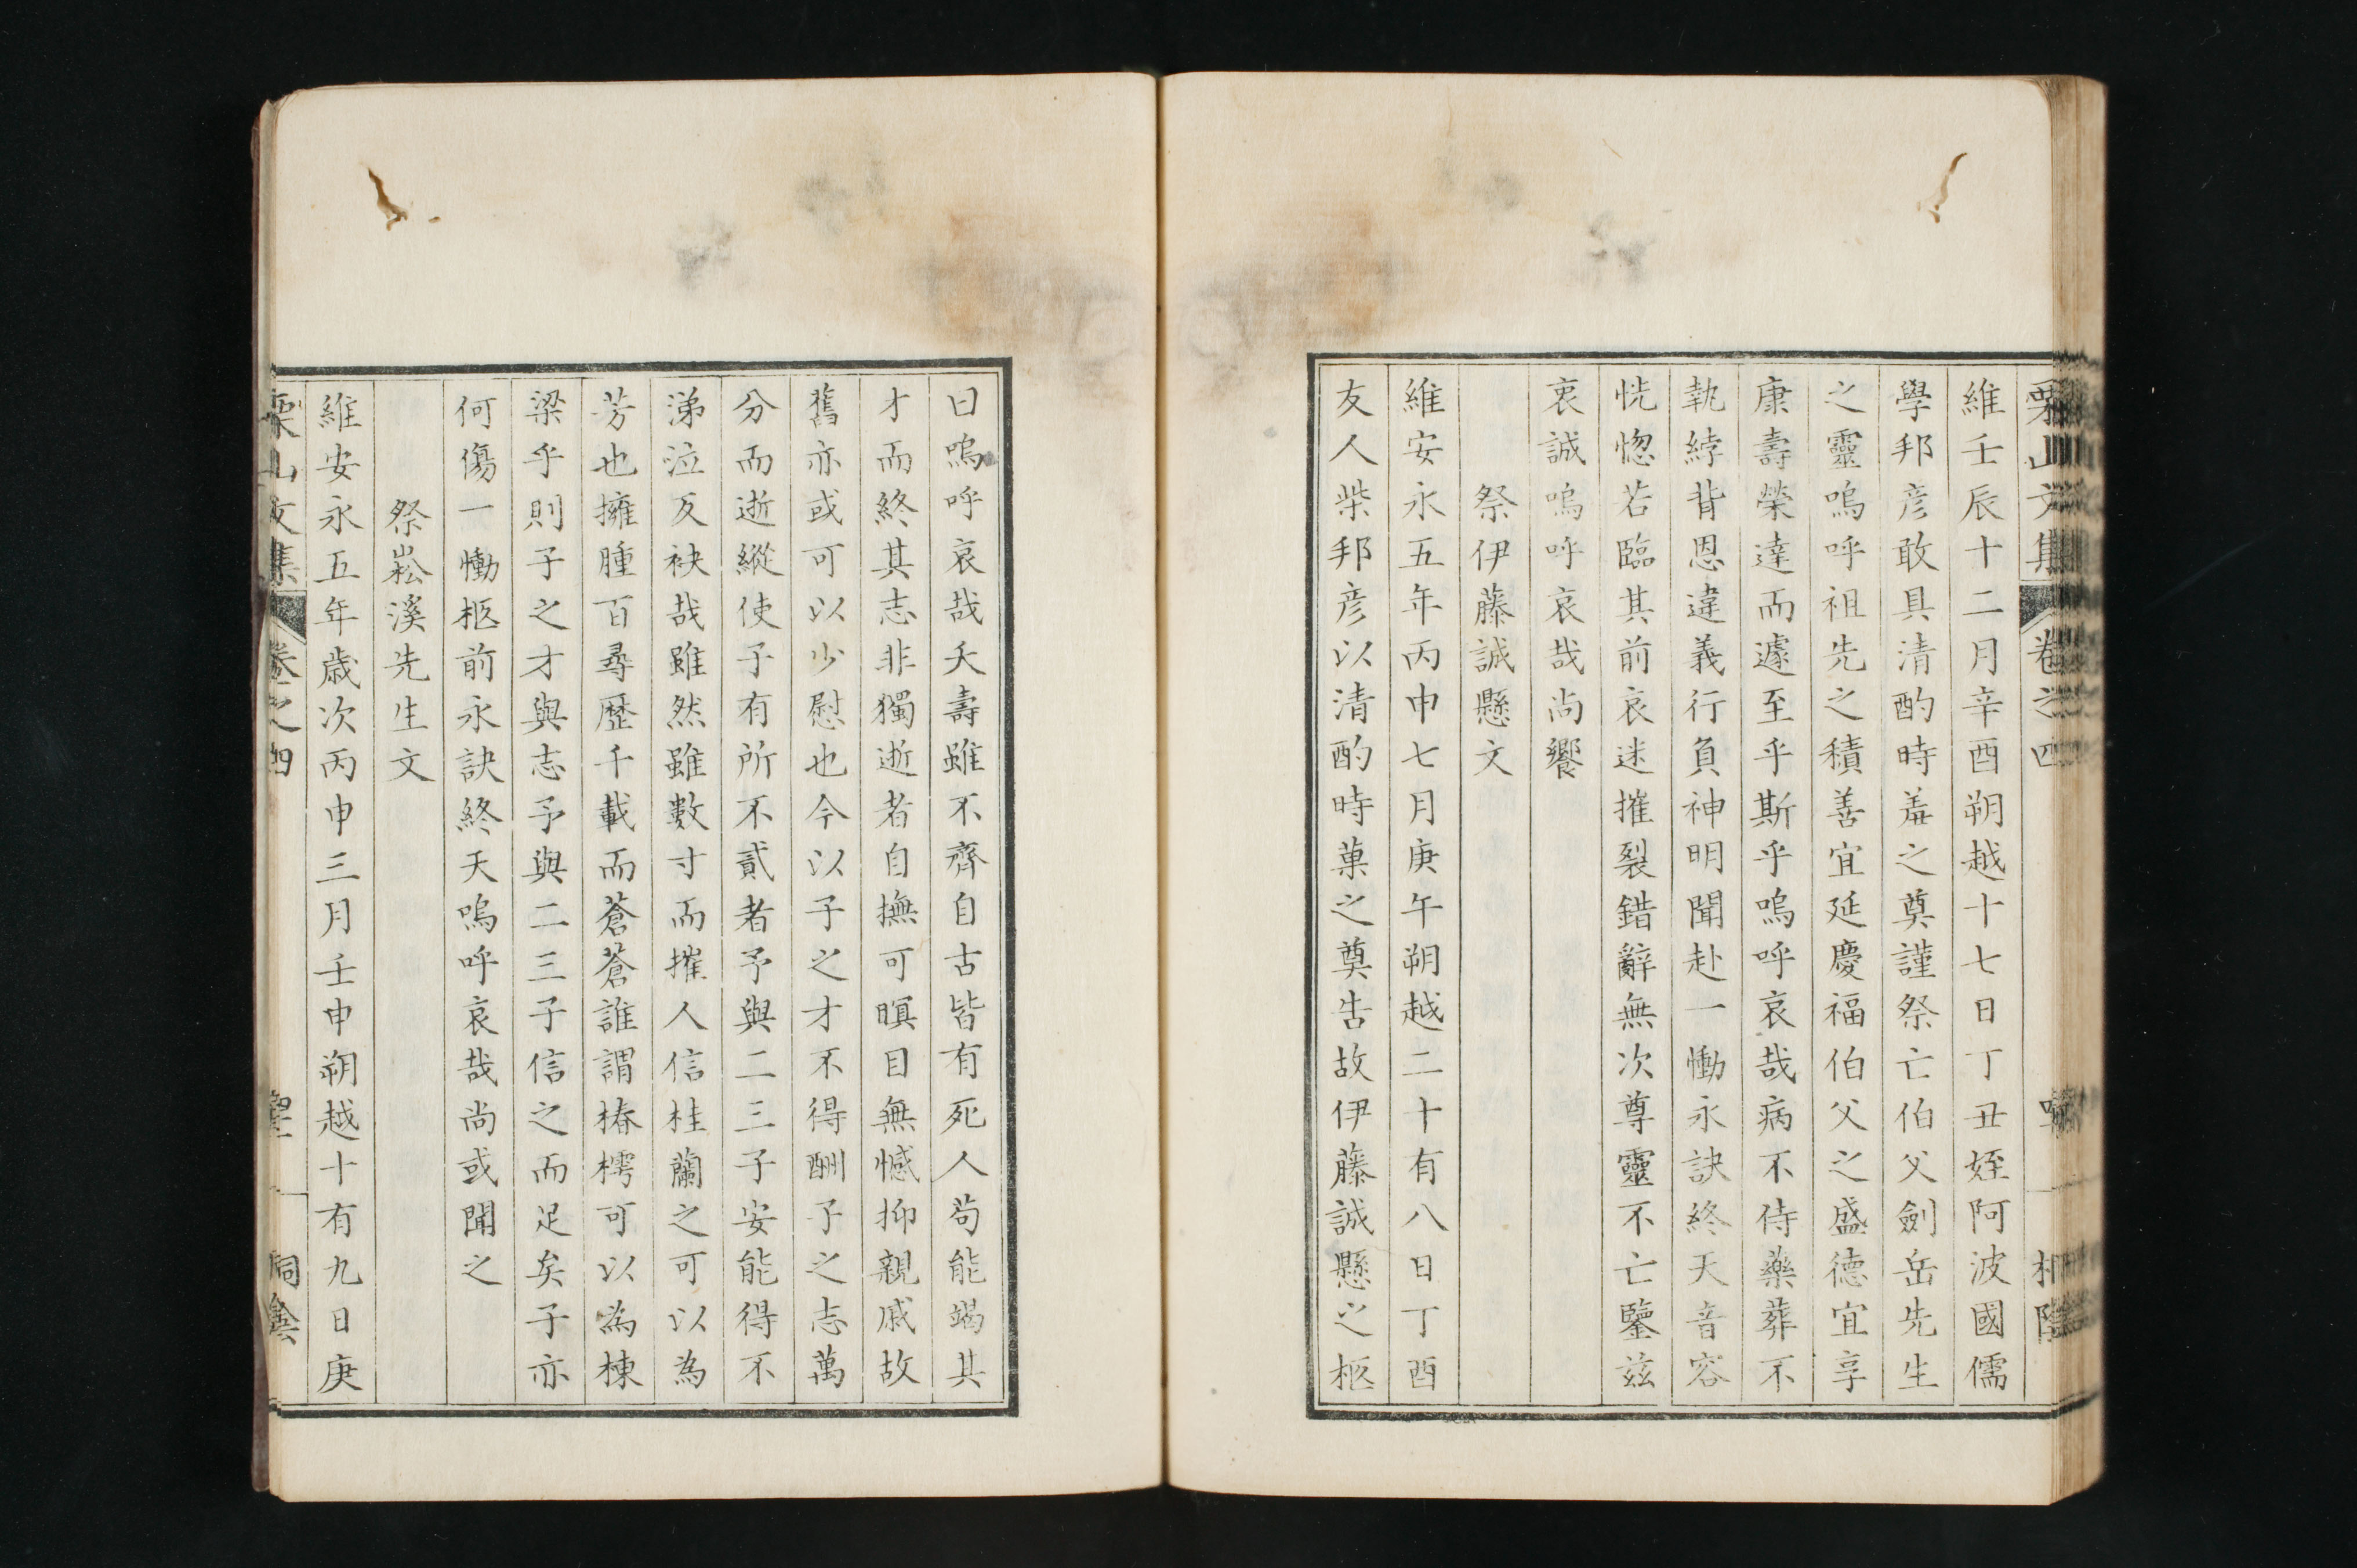 栗山文集 卷之四
維壬辰十二月辛酉朔越十七日丁丑姪阿波國儒
學邦彦敢具清酌時羞之奠謹祭亡伯父劍岳先生
之靈嗚呼祖先之積善宜延慶福伯父之盛德宜享
康壽榮達而遽至乎斯乎嗚呼哀哉病不侍藥葬不
執綍背恩違義行負神明聞赴一慟永訣終天音容
恍惚若臨其前哀迷摧裂錯辭無次尊靈不亡鑒茲
衷誠嗚呼哀哉尚饗
祭伊藤誠懸文
維安永五年丙申七月庚午朔越二十有八日丁酉
友人柴邦彦以清酌時菓之奠告故伊藤誠懸之柩
曰嗚呼哀哉夭壽雖不齊自古皆有死人苟能竭其
才而終其志非獨逝者自撫可瞑目無憾抑親戚故
舊亦或可以少慰也今以子之才不得酬子之志萬
分而逝縱使子有所不貳者予與二三子安能得不
涕泣反袂哉雖然雖數寸而摧人信桂蘭之可以為
芳也擁腫百尋歷千載而蒼蒼誰謂椿樗可以為棟
梁乎則子之才與志予與二三子信之而足矣子亦
何傷一慟柩前永訣終天嗚呼哀哉尚或聞之
祭崧溪先生文
維安永五年歳次丙申三月壬申朔越十有九日庚
栗山文集 卷之四